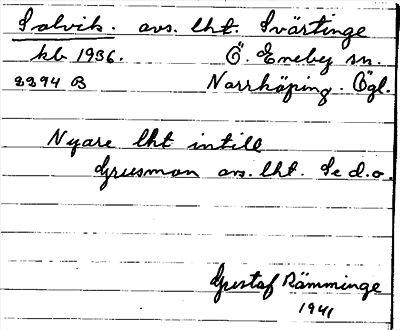 Solvik. avs. lht. Svärtinge
kb 1936. Ö. Eneby sn.
2394 B Norrköping. Ögl.
Nyare lht intill
Grusmon avs. lht. Se d.o.
Gustaf Rämminge
1941